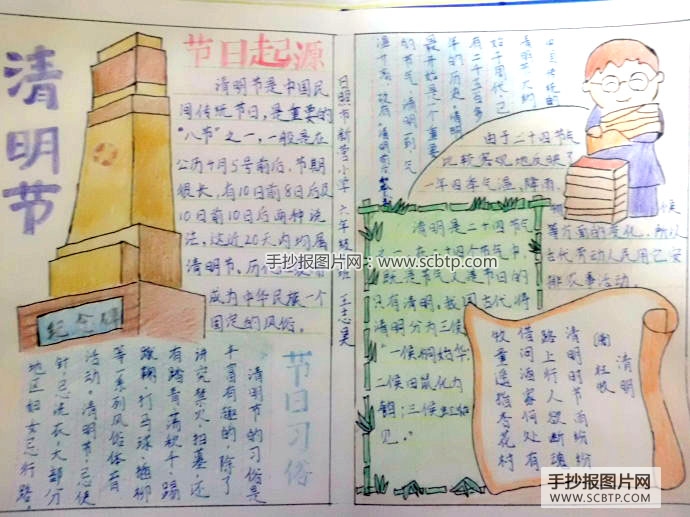 清明节
节日起源
清明节是中国民
间传统节日，是重要的
"八节"之一，一般是在
公历4月5号前后，节期
很长，有10日前8日后及
10日前10日后两种说
法，这近20天内均属
清明节。
成为中华民族一个
固定的风俗。
纪念碑
日照市新营小学
六年级
班
节日习俗
清明节的习俗是
丰富有趣的，除了
讲究禁火、扫墓，还
有踏青、荡秋千、蹴
蹴鞠、打马球、插柳
等一系列风俗体育
活动。清明节，忌使
针，忌洗衣，大部分
地区妇女忌行路。
清明节大约
始于周代，已
有二千五百多
年的历史。清明
最开始是一个重要
的节气，清明一到，气
由于二十四节气
比较客观地反映了
一年四季气温、降雨、
候
等方面的变化，所以
古代劳动人民用它安
排农事活动。
清明是二十四节气
之一，在二十四个节气中，
既是节气又是节日的
只有清明。我国古代将
清明分为三候：
"一候桐始华；
二候田鼠化为
见。"
清明
(唐) 杜牧
清明时节雨纷纷
路上行人欲断魂
借问酒家何处有
牧童遥指杏花村
手抄报图片网：www.scbtp.com
手抄报图片网
WWW.SCBTP.COM